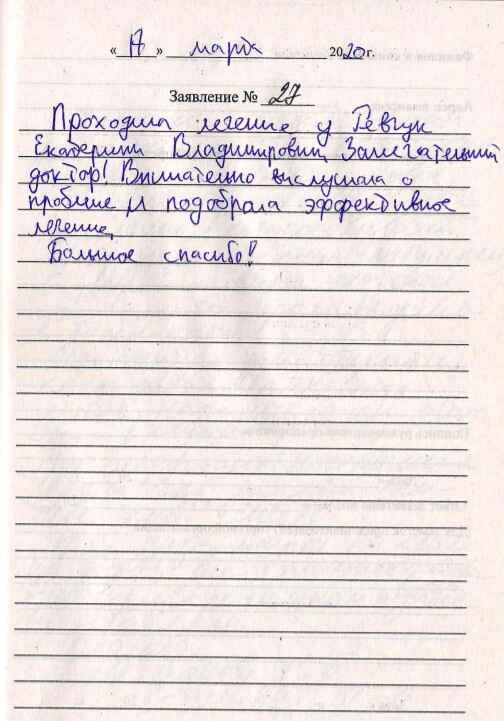 « » марта 2020 г.
Заявление № 27
Проходила лечение у Ревчук
Екатерины Владимировны. Замечательный
доктор! Внимательно выслушала о
проблеме и подобрала эффективное
лечение.
Большое спасибо!